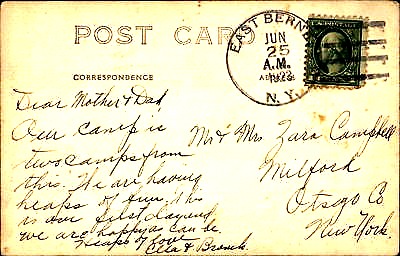 POST CARD
CORRESPONDENCE
EAST BERNE
JUN
25
A.M.
N.Y.
U.S. POSTAGE
Dear Mother & Dad,
Our camp is
two camps from
this. We are having
heaps of fun. This
is our first day and
we are happy as can be.
Heaps of love
Mr & Mrs Zara Campbell
Milford
Otsego Co
New York.